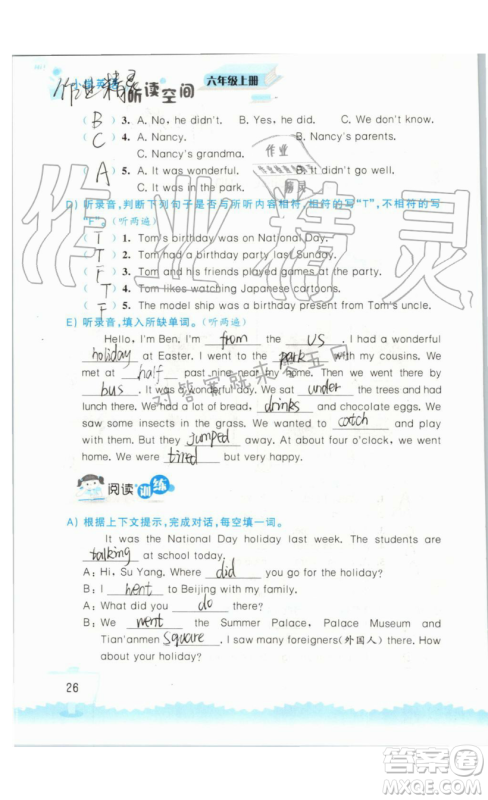 六年级上册
小学英语 听读空间
作业精灵
( B ) 3. A. No, he didn't. B. Yes, he did. C. We don't know.
( C ) 4. A. Nancy. B. Nancy's parents.
C. Nancy's grandma.
( A ) 5. A. It was wonderful. B. It didn't go well.
C. It was in the park.
D) 听录音,判断下列句子是否与所听内容相符,相符的写"T",不相符的写
"F"。(听两遍)
( T ) 1. Tom's birthday was on National Day.
( T ) 2. Tom had a birthday party last Sunday.
( F ) 3. Tom and his friends played games at the party.
( T ) 4. Tom likes watching Japanese cartoons.
( F ) 5. The model ship was a birthday present from Tom's uncle.
E) 听录音,填入所缺单词。(听两遍)
Hello, I'm Ben. I'm from the US. I had a wonderful
holiday at Easter. I went to the park with my cousins. We
met at half past nine near my home. Then we went there by
bus. It was a wonderful day. We sat under the trees and had
lunch. We had a lot of bread, drinks and chocolate eggs. We
saw some insects in the grass. We wanted to catch
them. But they jumped away. At about four o'clock, we went home.
We were tired but very happy.
阅读训练
A) 根据上下文提示,完成对话,每空填一词。
It was the National Day holiday last week. The students are
talking at school today.
A: Hi, Su Yang. Where did you go for the holiday?
B: I went to Beijing with my family.
A: What did you do there?
B: We went the Summer Palace, Palace Museum and
Tian'anmen Square. I saw many foreigners(外国人) there. How
about your holiday?
26
作业精灵
对答案就来零五网
作业精灵